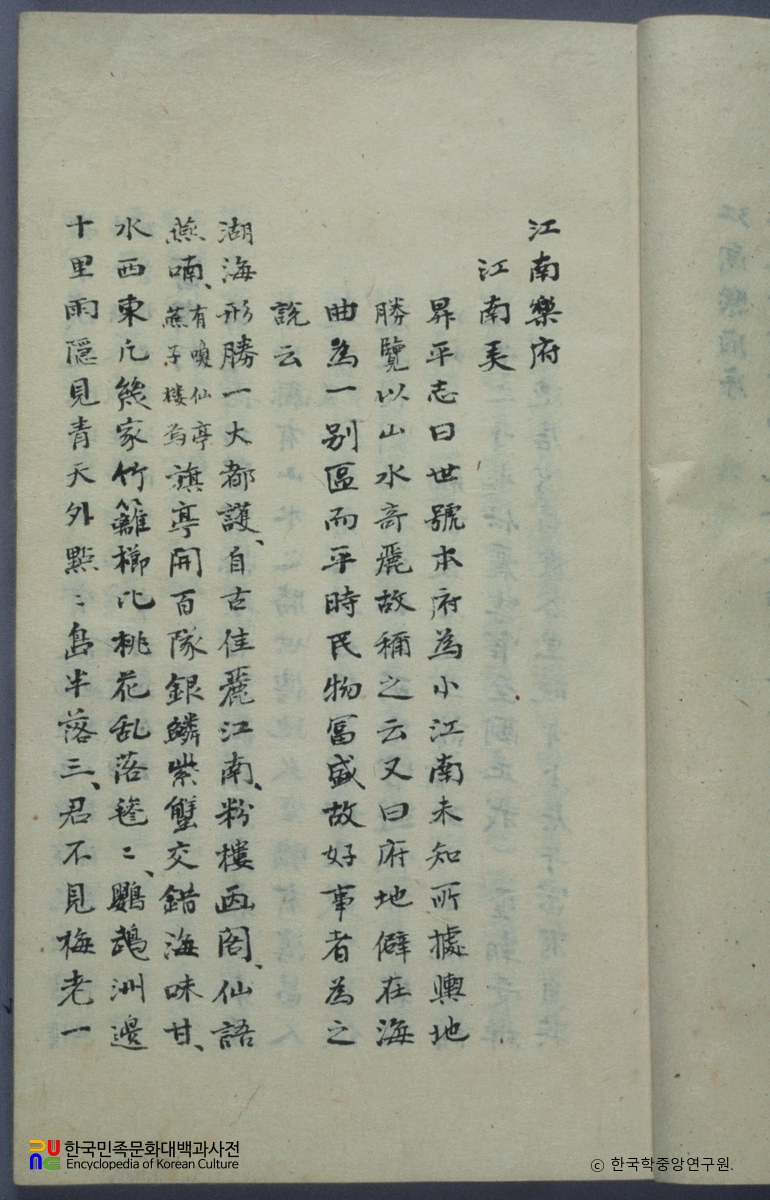 江南樂府
江南美
昇平志曰世號本府為小江南未知所據輿地
勝覽以山水奇麗故稱之云又曰府地僻在海
曲為一別區而平時民物富盛故好事者為之
說云
湖海形勝一大都護、自古佳麗江南、粉樓畫閣、仙語
燕喃、有喚仙亭燕子樓為旗亭開百隊銀鱗紫蟹交錯海味甘、
水西東凡幾家竹籬櫛比桃花乱落毿〻、鸚鵡洲邊
十里雨隱見青天外點〻島半落三、君不見梅老一
한국민족문화대백과사전
Encyclopedia of Korean Culture
© 한국학중앙연구원.